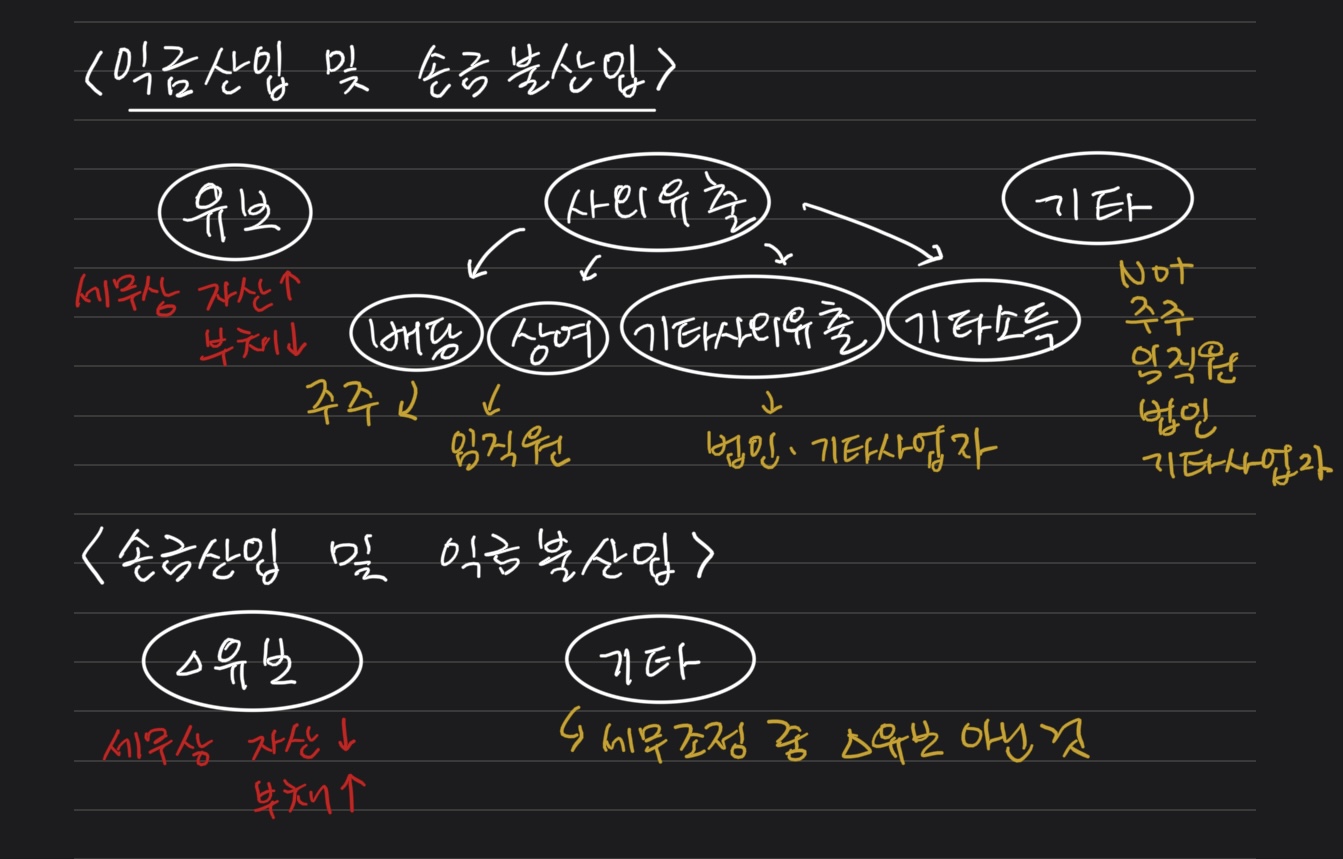 <익금산입 및 손금불산입>
유보 사외유출 기타
세무상 자산↑
부채↓
배당 상여 기타사외유출 기타소득
주주
임직원
법인·기타사업자
Not
주주
임직원
법인
기타사업자
<손금산입 및 익금불산입>
△유보 기타
세무상 자산↓
부채↑
↳ 세무조정 중 △유보 아닌 것